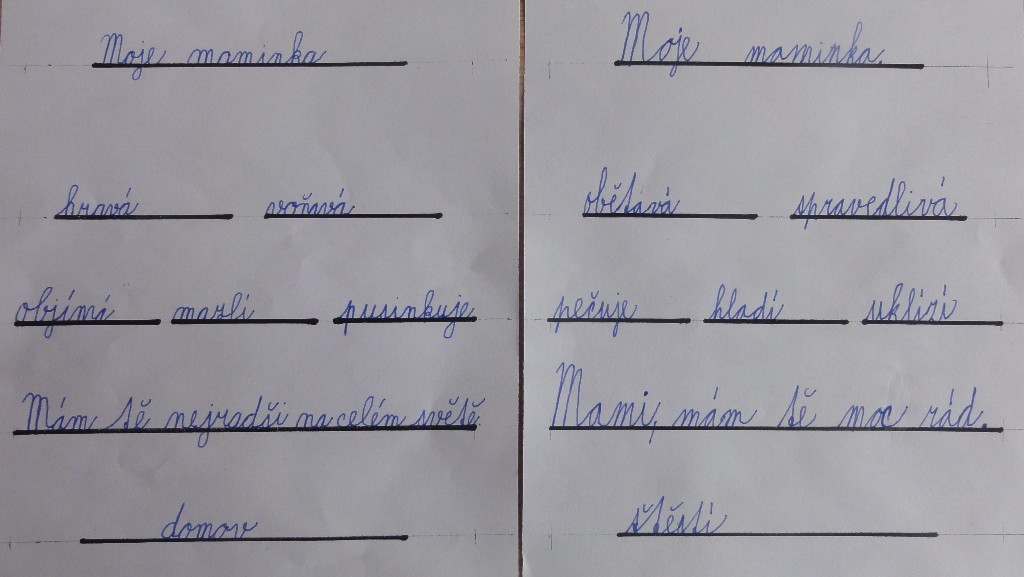 Moje maminka
hravá voňavá
objímá mazlí pusinkuje
Mám tě nejradši na celém světě
domov
Moje maminka.
obětavá spravedlivá
pečuje hladí uklízí
Mami, mám tě moc rád.
štěstí